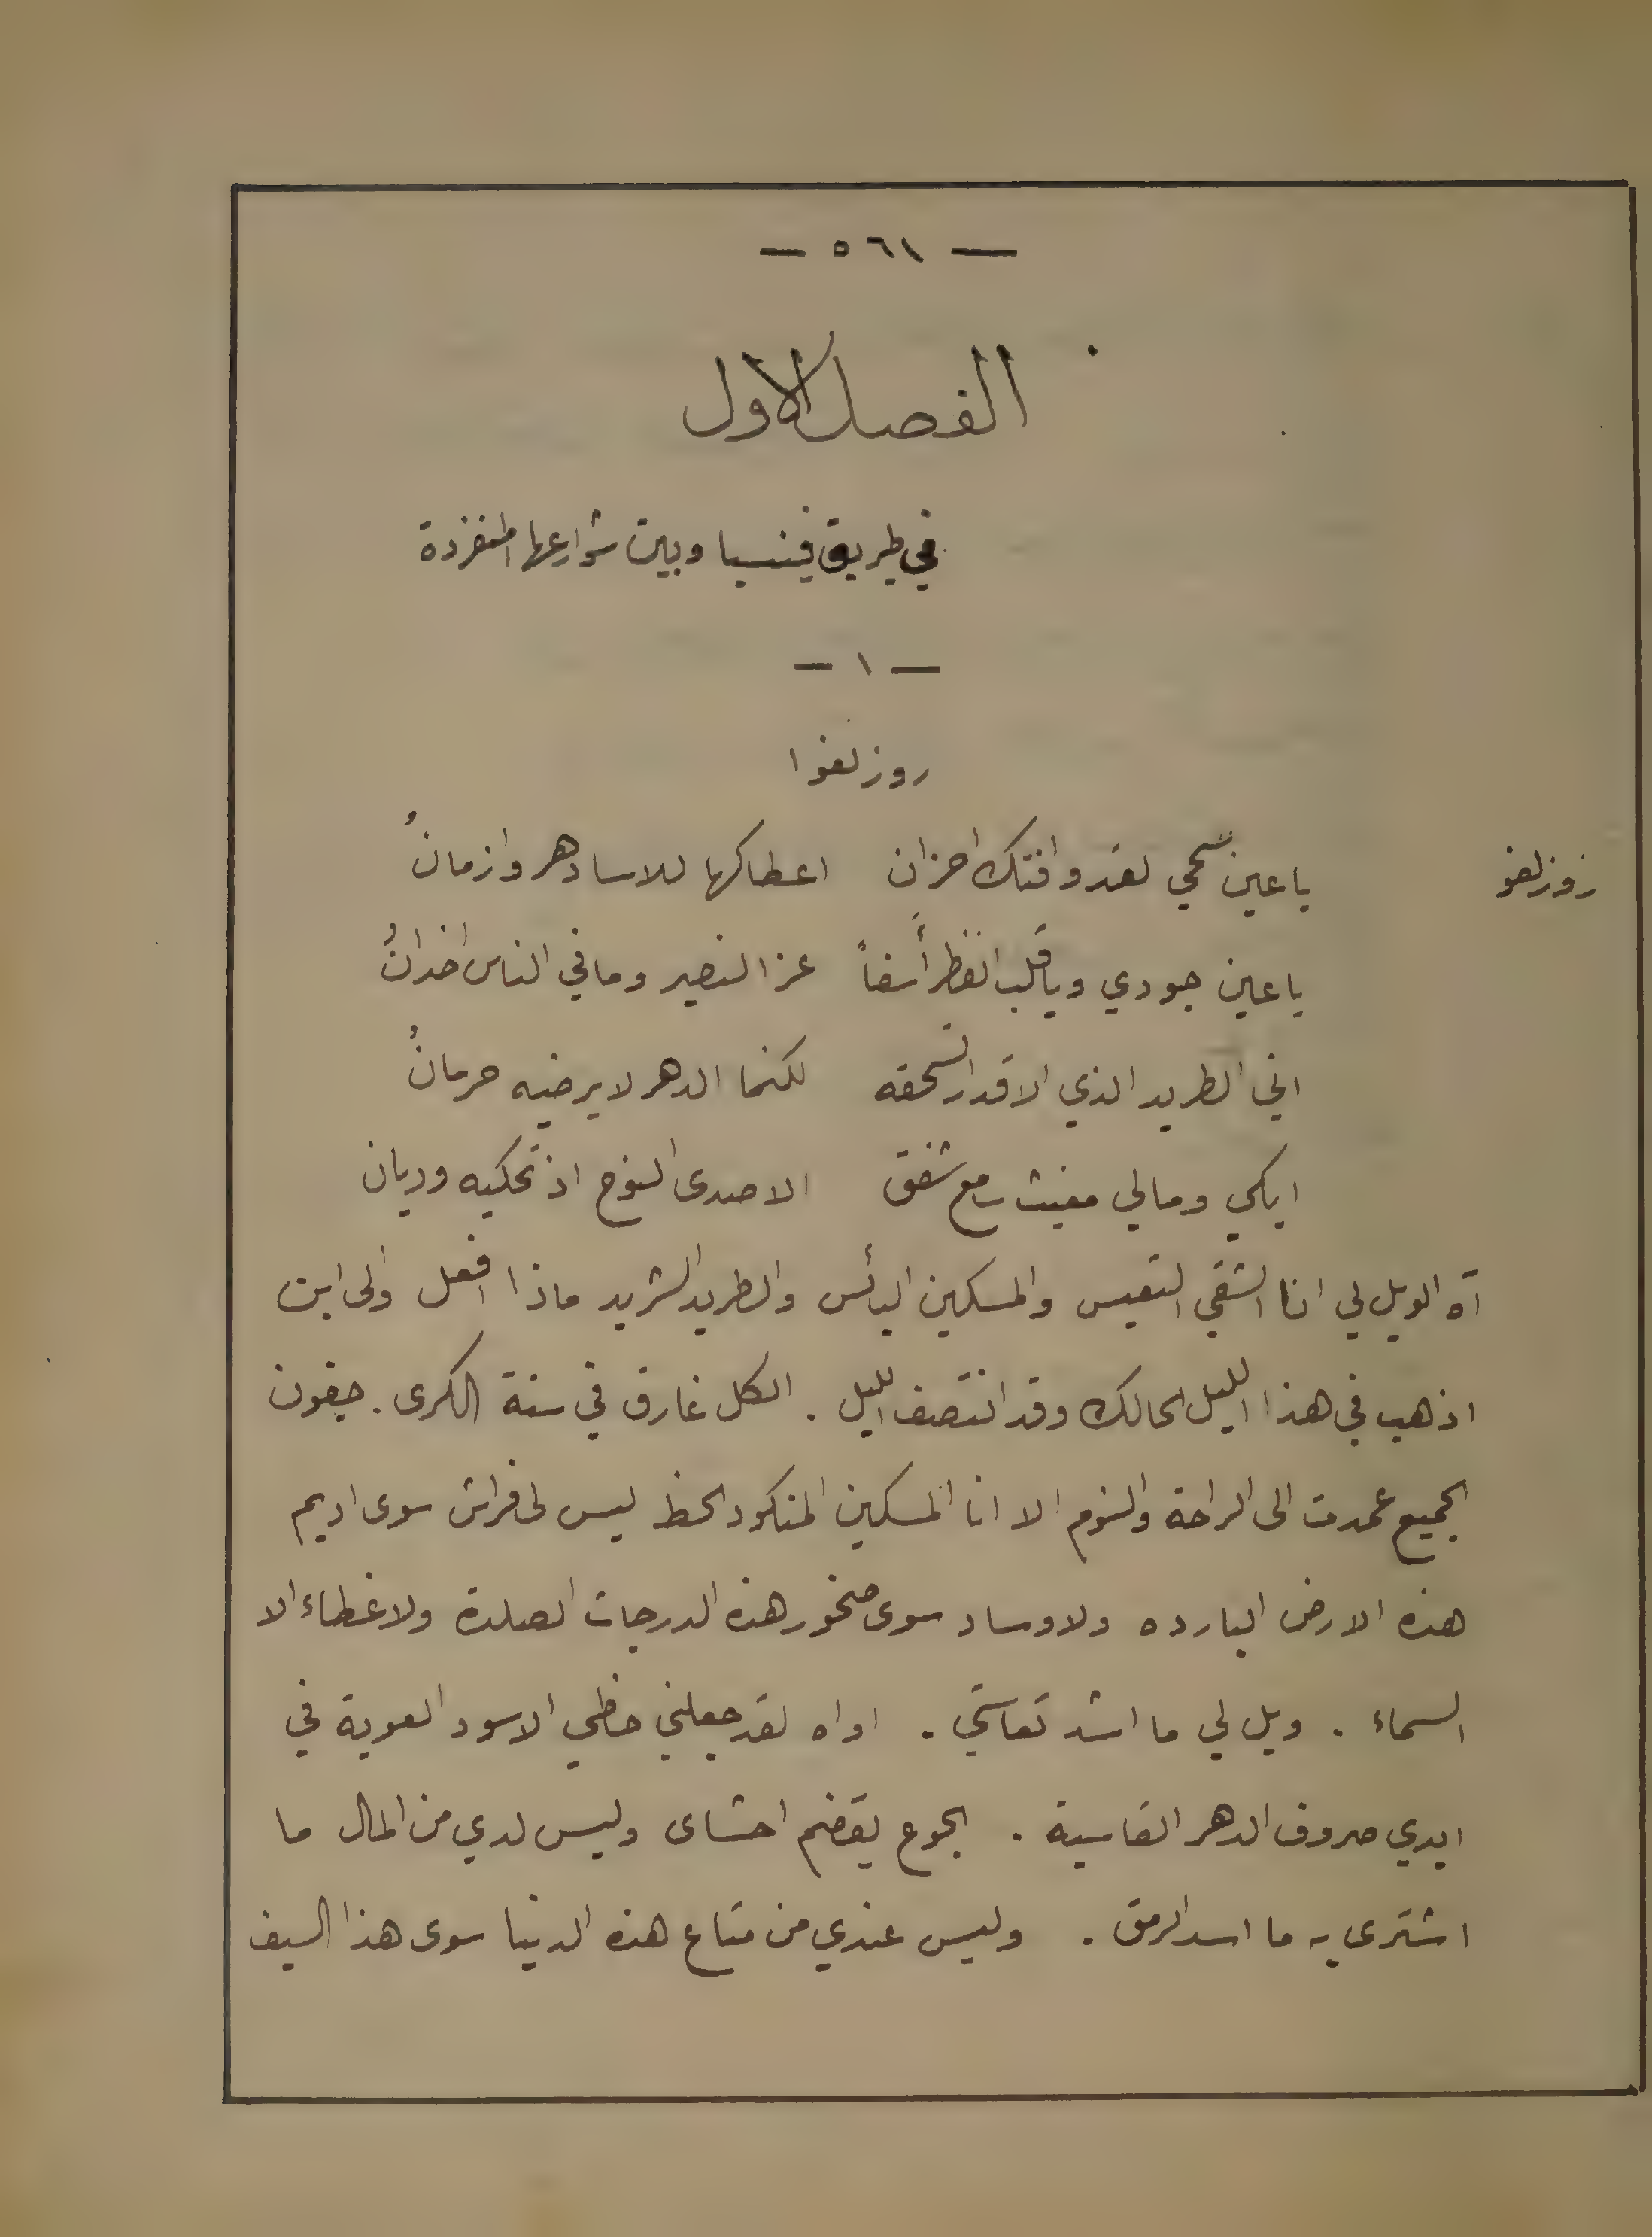 — ٥٦١ —
الفصل الاول
في طريق فينسيا وبين شوارعها المنفردة
— ١ —
روزلفوا
روزلفو
يا عين سحي لقد وافتك احزان اعطاكها للاسا دهر وازمانُ
يا عين جودي ويا قلب انفطر أسفاً عز النصير وما في الناس اخدانُ
اني الطريد الذي الاقدار تسحقه لكنما الدهر لا يرضيه حرمانُ
ابكي ومالي مغيث سامع شفق الا صدى النوح اذ تحكيه وديان
آه الويل لي انا الشقي التعيس والمسكين البأس والطريد الشريد ماذا افعل والى اين
اذهب في هذا الليل الحالك وقد انتصف الليل . الكل غارق في سنة الكرى . جفون
الجميع عمدت الى الراحة والنوم الا انا المسكين المنكود الحظ ليس لى فراش سوى اديم
هذه الارض البارده ولا وساد سوى صخور هذه الدرجات الصلدة ولا غطاء الا
السماء . ويل لي ما اشد تعاستي . اواه لقد جعلني حظي الاسود العوبة في
ايدي صروف الدهر القاسية . الجوع يقضم احشاى وليس لدي من المال ما
اشترى به ما اسد الرمق . وليس عندي من متاع هذه الدنيا سوى هذا السيف